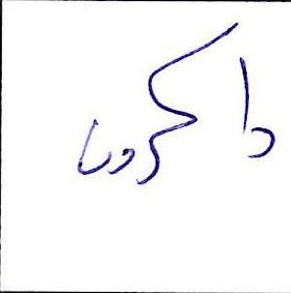 داکرونا